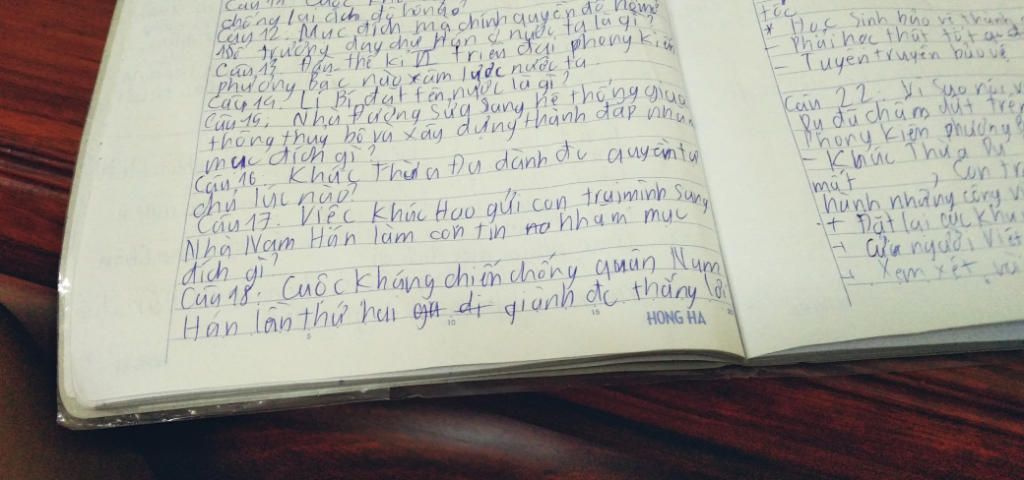 chống lại ách đô hộ
Câu 12: Mục đích mà chính quyền đô hộ mở
trường dạy chữ Hán ở nước ta là gì?
Câu 13 Đến thế kỉ VI triều đại phong kiến
phương bắc nào xâm lược nước ta
Câu 14: Lí Bí đặt tên nước là gì?
Câu 15: Nhà Đường sửa sang hệ thống giao
thông thuỷ bộ và xây dựng thành đắp nhằm
mục đích gì?
Câu 16: Khúc Thừa Dụ dành đc quyền tự
chủ lúc nào?
Câu 17: Việc Khúc Hạo gửi con trai mình sang
Nhà Nam Hán làm con tin nhằm mục
đích gì?
Câu 18: Cuộc kháng chiến chống quân Nam
Hán lần thứ hai giành đc thắng lợi
HONG HA
tộc
* Học sinh bảo vệ thành
- Phải học thật tốt
- Tuyên truyền bảo vệ
Câu 22: Vì sao nói
Dụ đã chấm dứt trên
Phong kiến phương
- Khúc Thừa Dụ
mất , con tr
hành những công v
+ Đặt lại các khu
+ Của người Việt
+ Xem xét